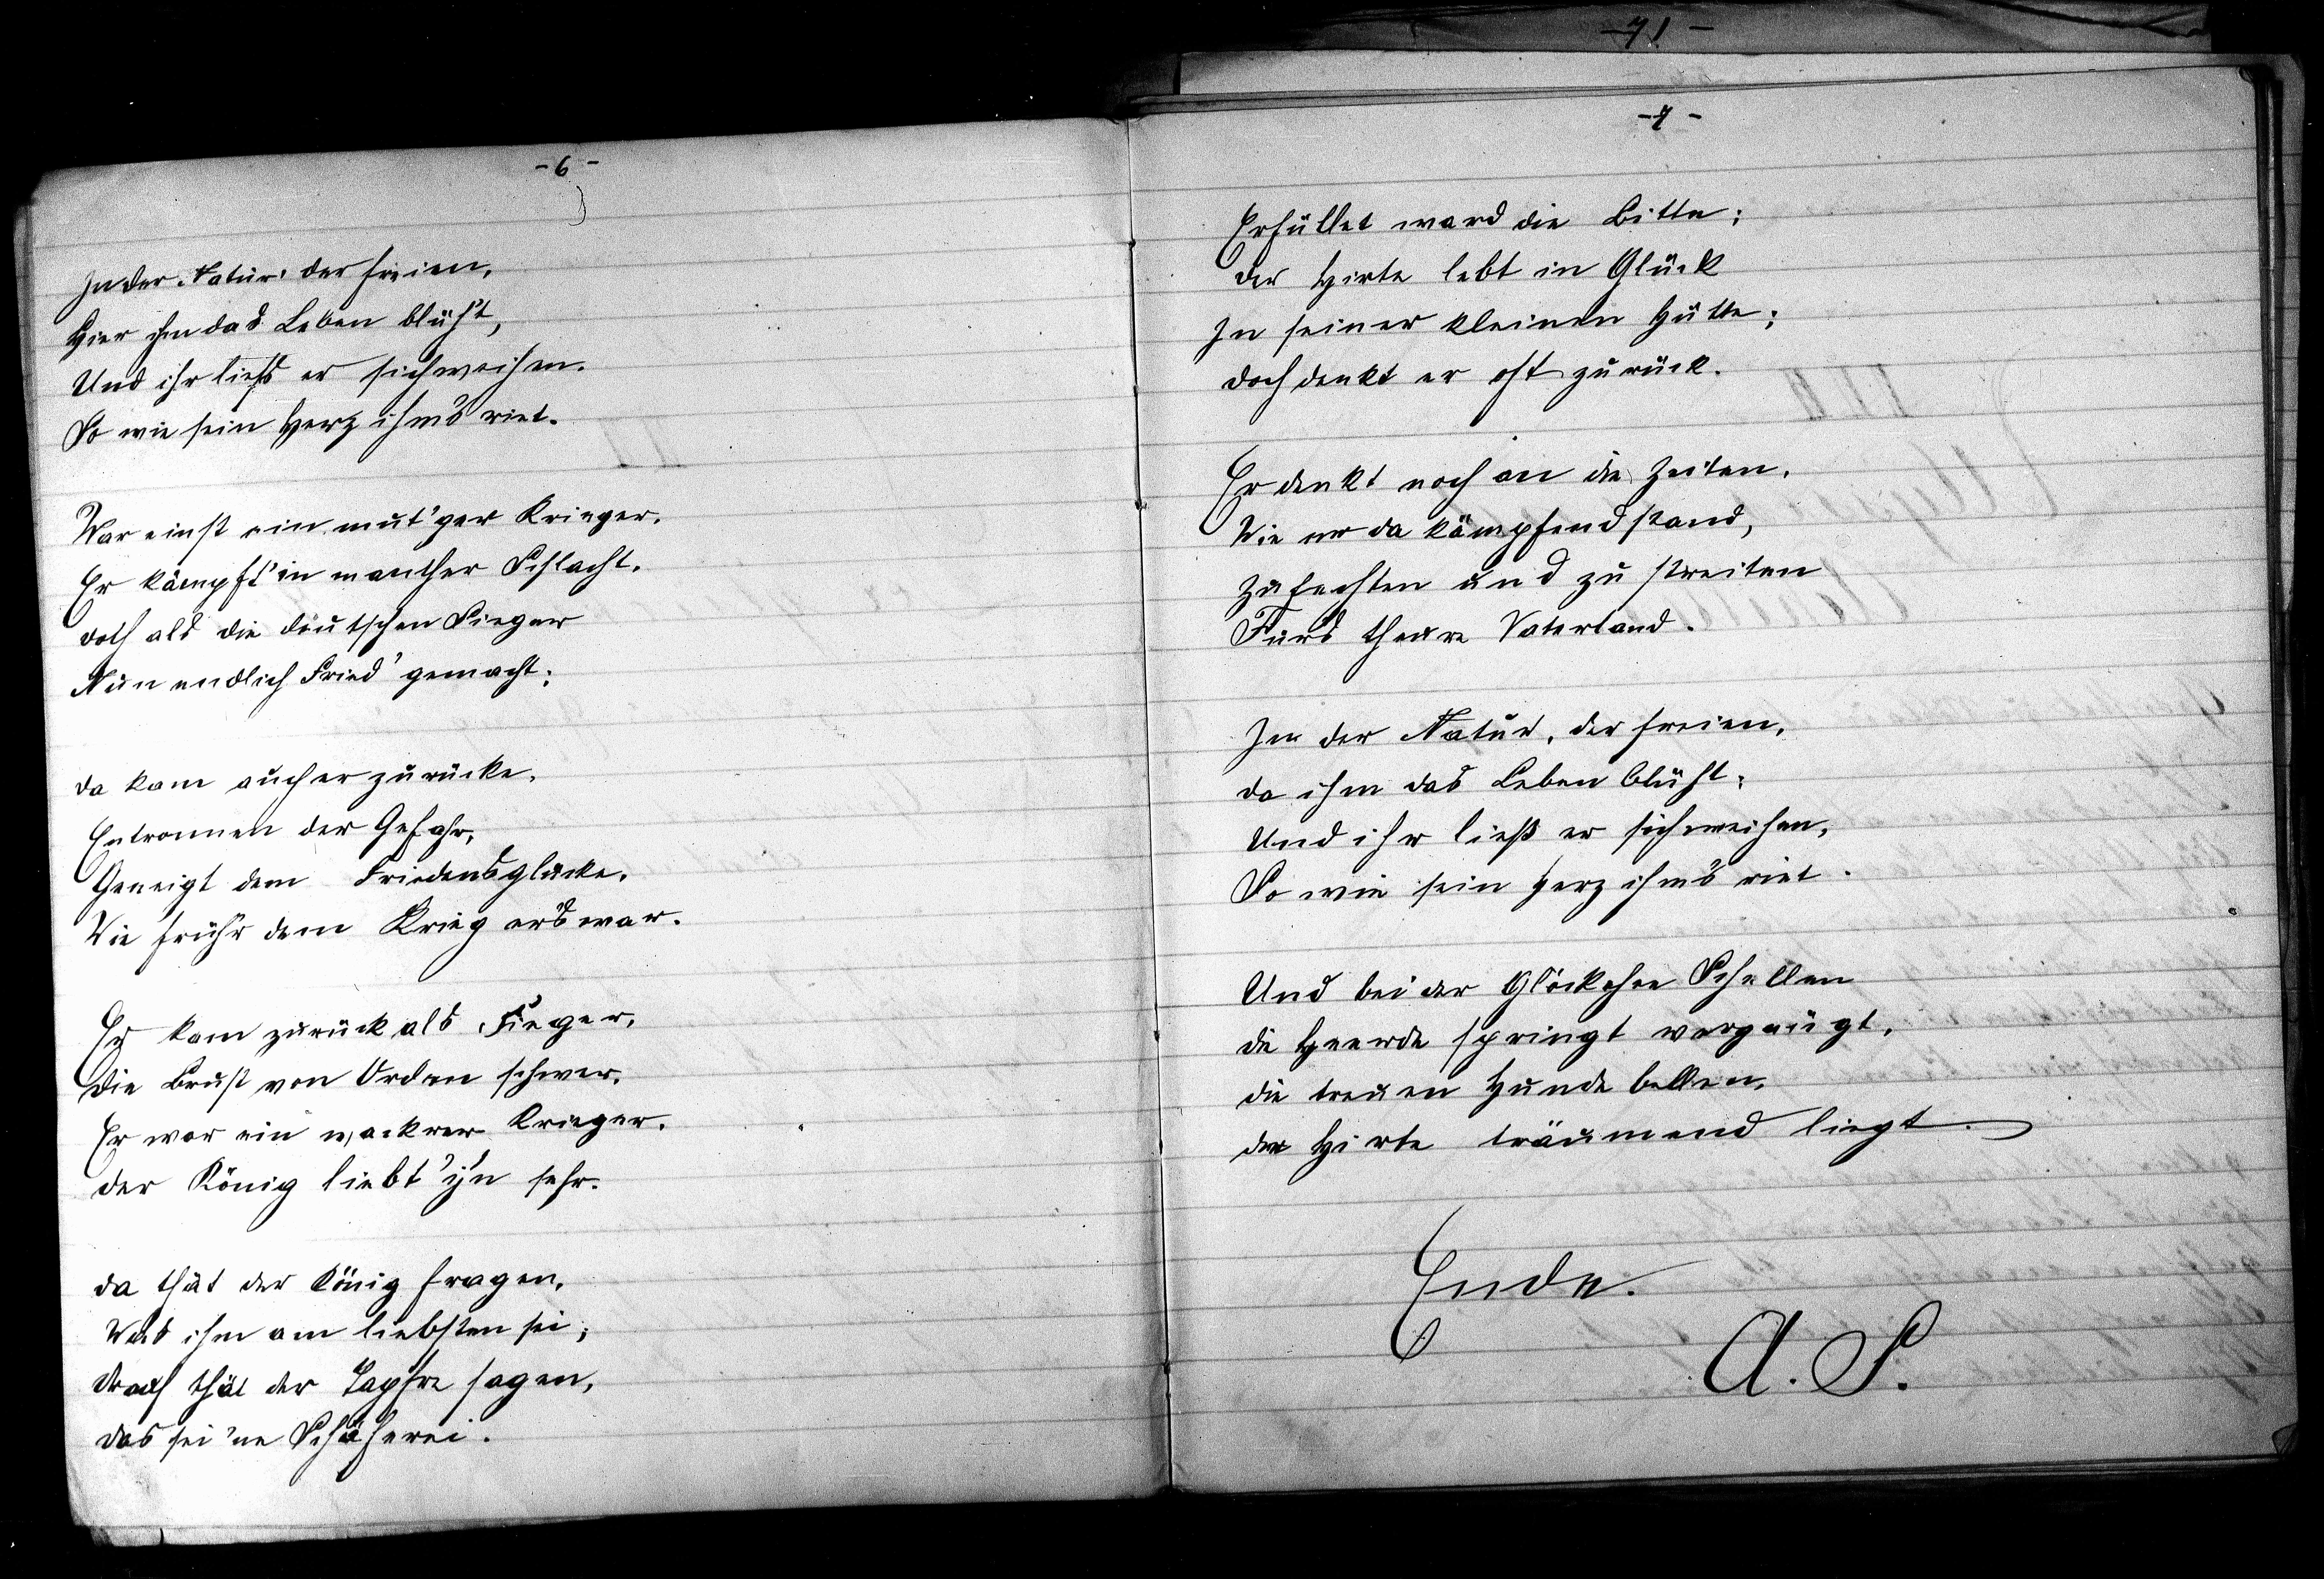 - 6 -
In der Natur der freien,
Hier ihm das Leben blüh't,
Und ihr ließs er sich weihen.
So wie sein Herz ihm's riet.
War einst ein mut'ger Krieger.
Er kämpft' in mancher Schlacht.
doch als die deutschen Sieger
Nun endlich Fried' gemacht;
da kam auch er zurücke,
Entronnen der Gefahr,
Geneigt dem Friedensglücke.
Wie früh'r dem Krieg er's war.
Er kam zurück als Sieger,
die Brust von Orden schwer.
Er war ein wackrer Krieger.
der König liebt' ih'n sehr.
da thät der König fragen,
Was ihm am liebsten sei;
drauf thät der Tapfre sagen,
das sei 'ne Schäferei.
- 71 -
- 7 -
Erfüllet ward die Bitte;
der Hirte lebt in Glück
In seiner kleinen Hütte;
doch denkt er oft zurück.
Er denkt noch an die Zeiten.
Wie er da kämpfend stand,
Zu fechten und zu streiten
Fürs theure Vaterland.
In der Natur, der freien,
da ihm das Leben blüht;
Und ihr ließ er sich weihen,
So wie sein Herz ihm's riet.
Und bei der Glöckchen Schellen
die Heerde springt vergnügt,
die treuen Hunde bellen,
der Hirte träumend liegt.
Ende.
A. S.